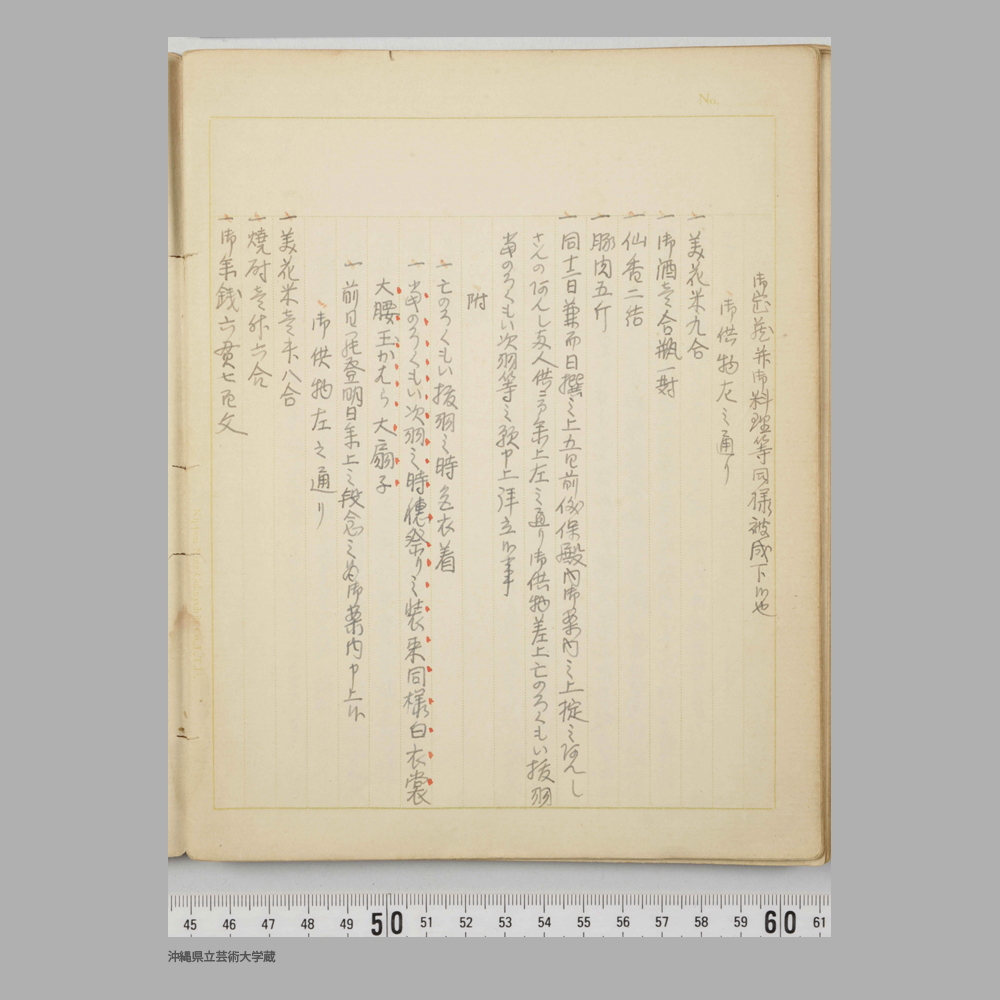 No.
御崇蔵并御料理等同様被成下候也
御供物左之通り
一 美花米九合
一 御酒壱合瓶一対
一 仙香二結
一 豚肉五斤
一 同十二日兼而日撰之上五日前 保殿内御案内之上掟之阿んし
さんの阿んし友人供 上左之通り御供物差上亡のろくもい抜羽
当のろくもい次羽等之願申上拝立候事
附
一 亡のろくもい抜羽之時色衣着
一 当のろくもい次羽之時穂祭り之装束同様白衣裳
大腰玉かむら大扇子
一 前日 登明日 上之段念之為御案内申上候
御供物左之通り
一 美花米壱升八合
一 燒酎壱升六合
一 御年銭六貫七百文
45 46 47 48 49 50 51 52 53 54 55 56 57 58 59 60 61
沖縄県立芸術大学蔵